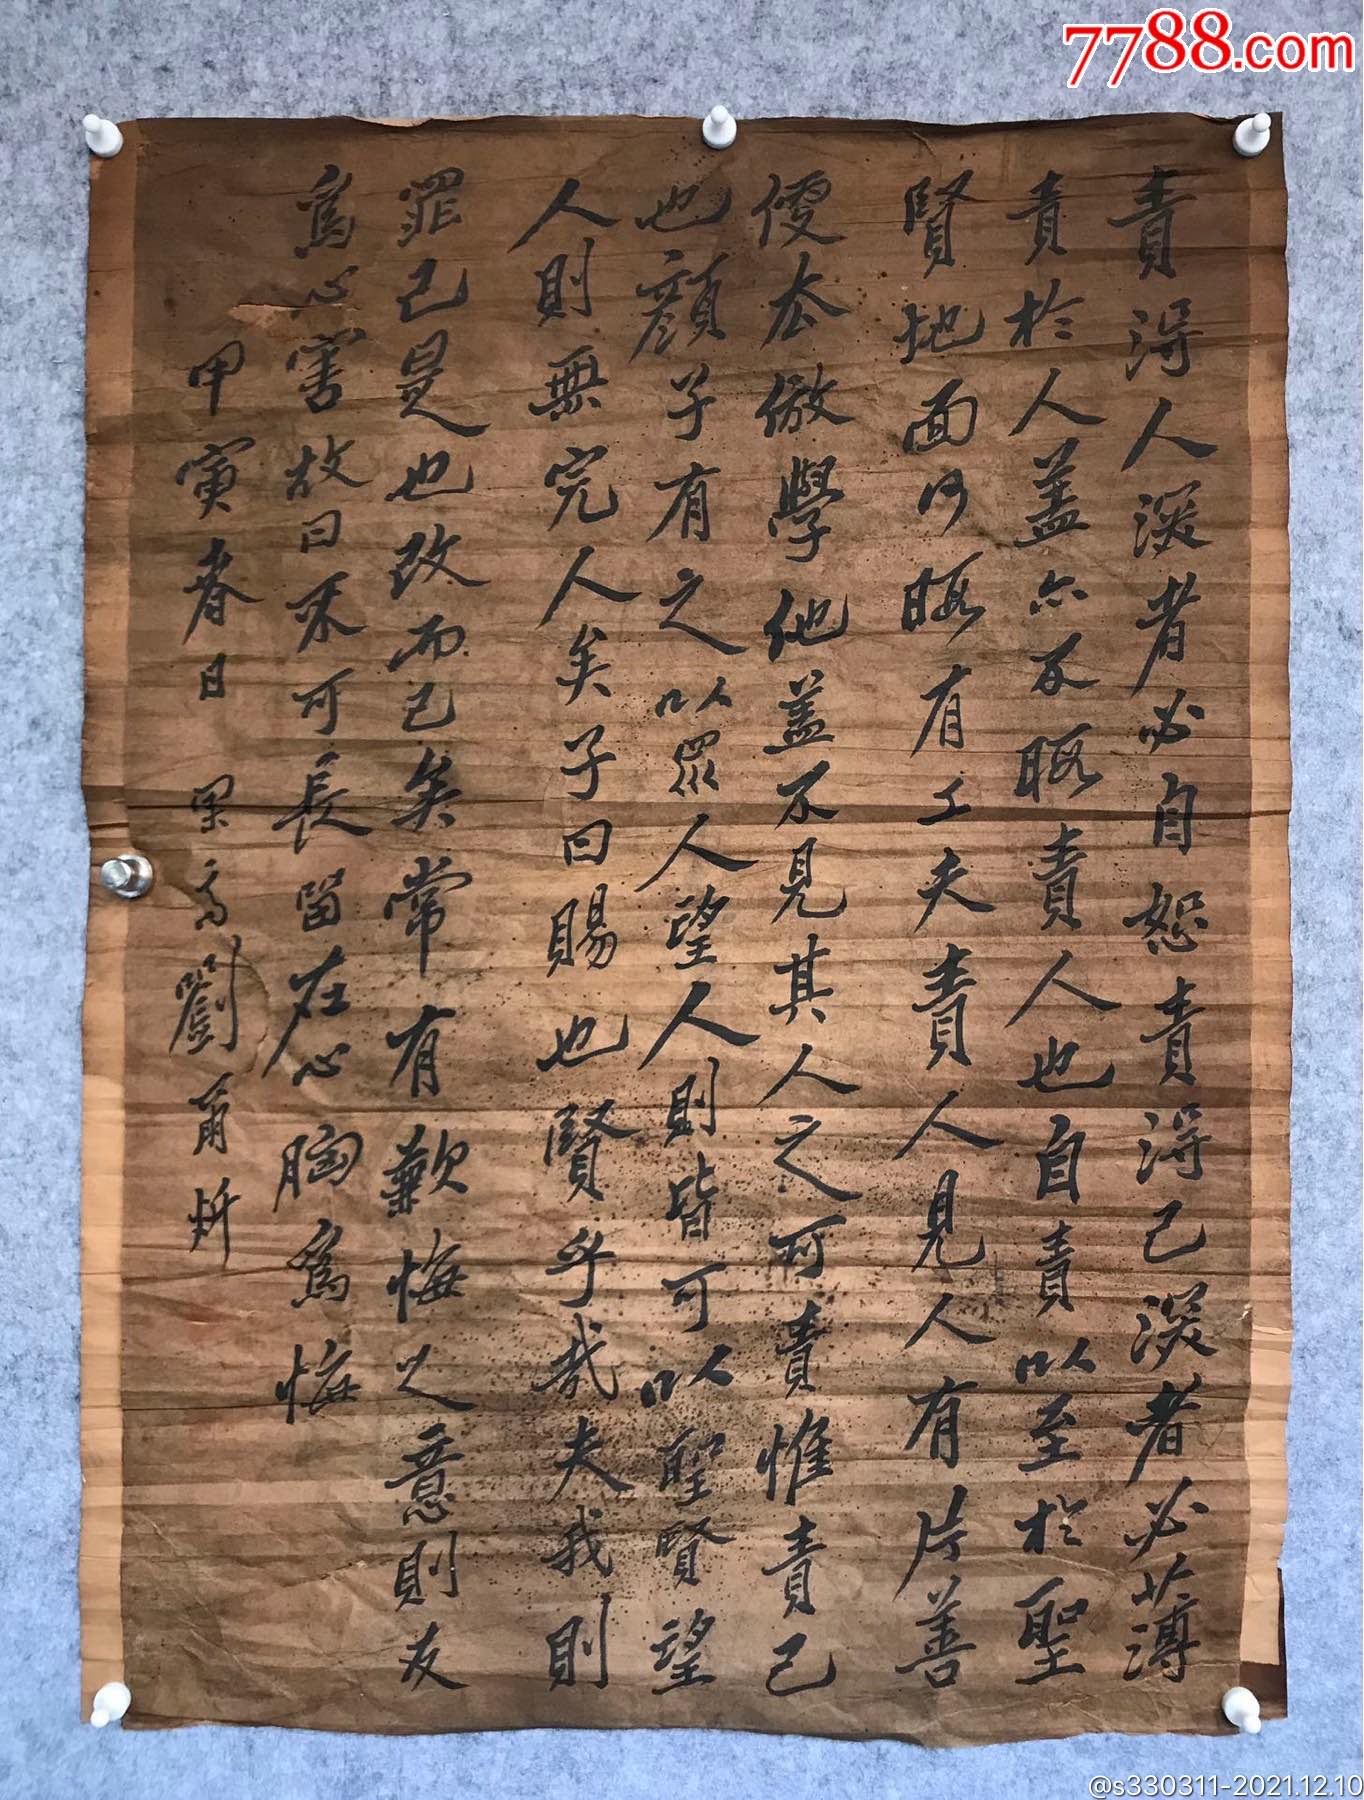 7788.com
責得人深者必自恕責得己深者必薄
責於人蓋亦不暇責人也自責以至於聖
賢地面何暇有工夫責人見人有片善
便去倣學他蓋不見其人之可責惟責己
也顔子有之以眾人望人則皆可以聖賢望
人則無完人矣子曰賜也賢乎哉夫我則
罪己是也改而已矣常有歉悔之意則反
為心害故曰不可長留在心胸為悔
甲寅春日 果齋劉爾炘
@s330311-2021.12.10